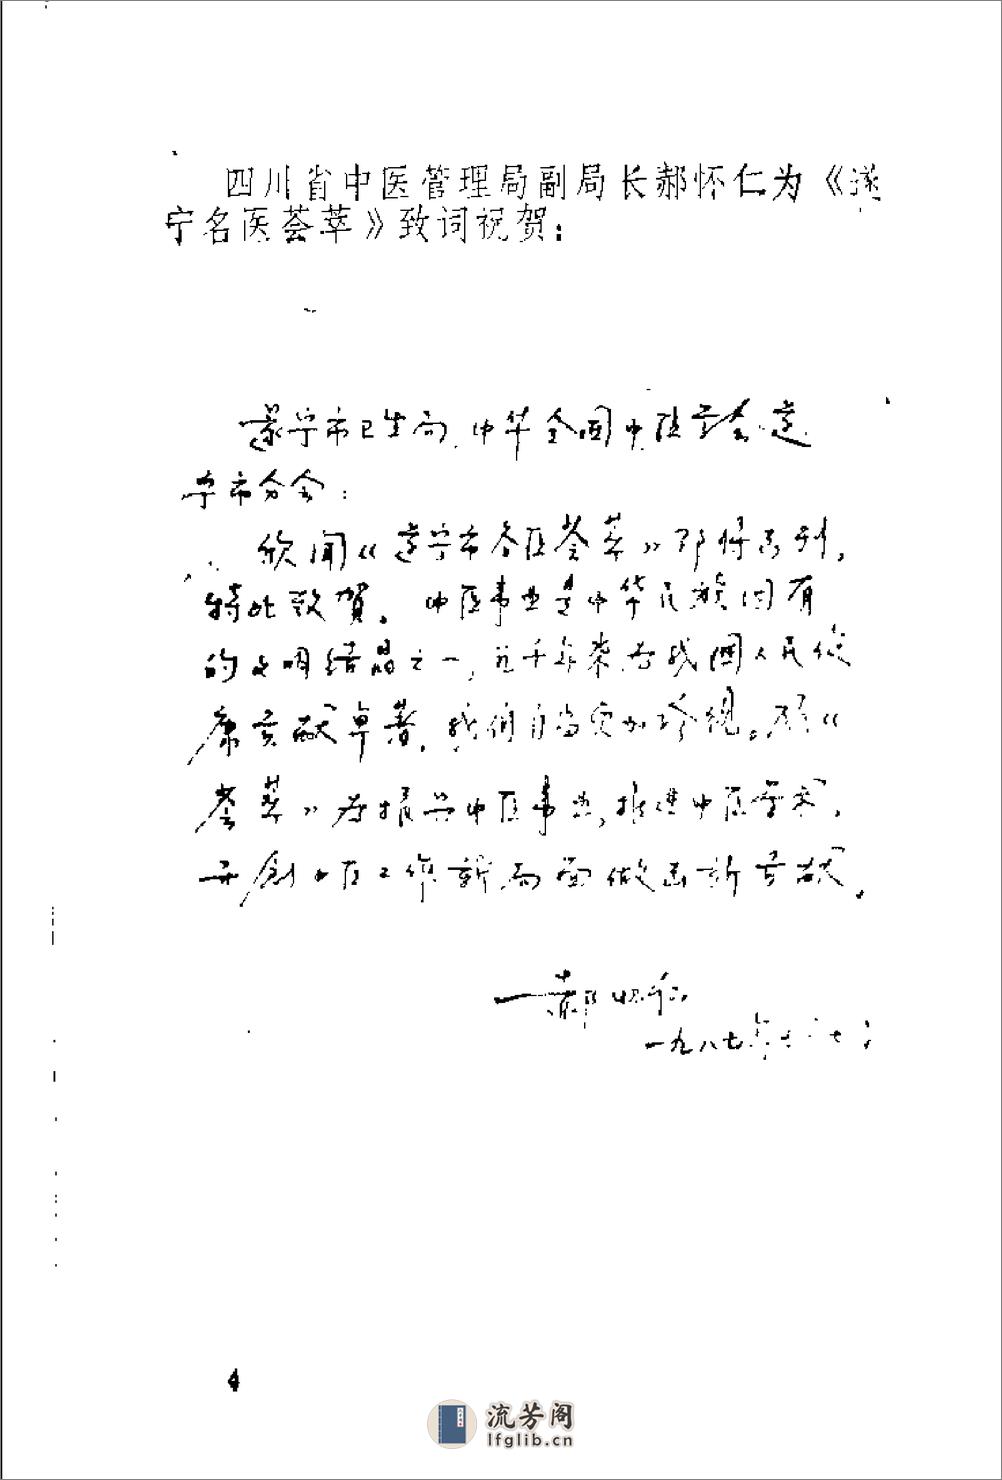 四川省中医管理局副局长郝怀仁为《遂
宁名医荟萃》致词祝贺:
遂宁市卫生局、中华全国中医学会遂
宁市分会:
欣闻《遂宁市名医荟萃》即将系列,
特此致贺。中医事业是中华民族固有
的文明结晶之一,几千年来为我国人民健
康贡献卓著,我们自当更加珍视。愿《
荟萃》为振兴中医事业,推进中医学术,
开创中医工作新局面做出新贡献。
郝怀仁
一九八七年
4
流芳阁
lfglib.cn